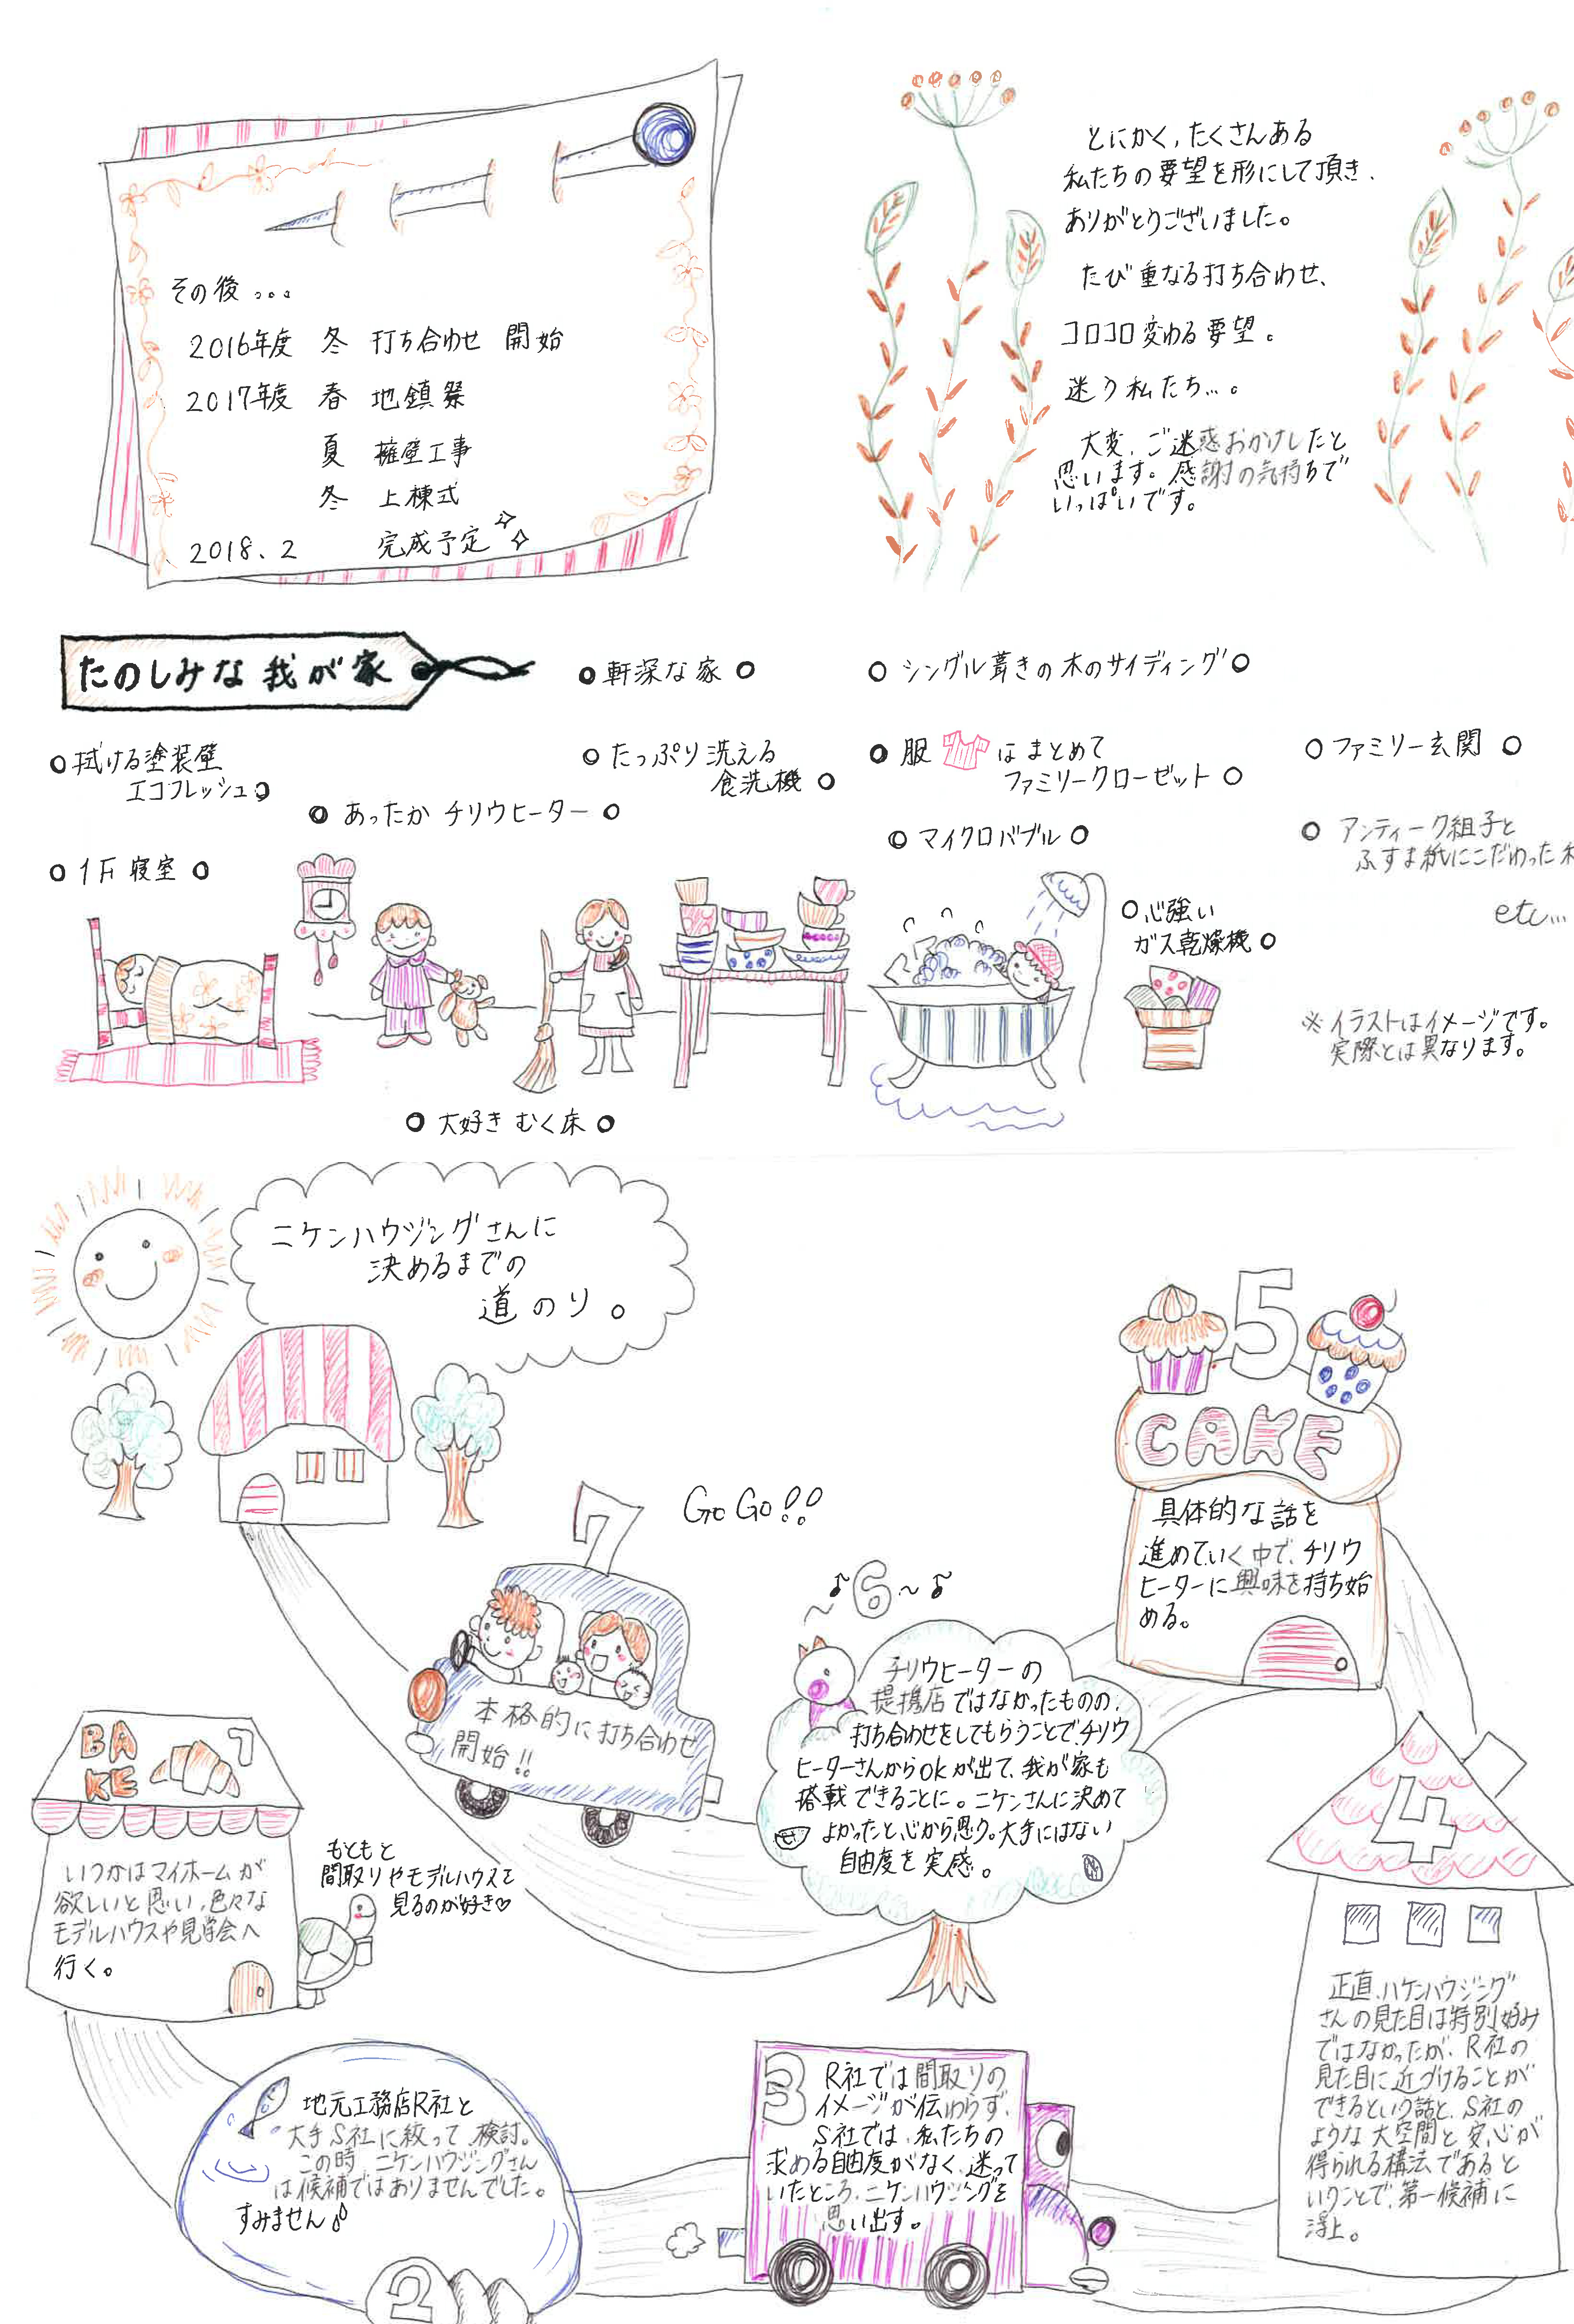 その後...
2016年度 冬 打ち合わせ 開始
2017年度 春 地鎮祭
夏 擁壁工事
冬 上棟式
2018.2 完成予定
とにかく、たくさんある
私たちの要望を形にして頂き、
ありがとうございました。
たび重なる打ち合わせ、
コロコロ変わる要望。
迷う私たち...。
大変、ご迷惑おかけしたと
思います。感謝の気持ちで
いっぱいです。
たのしみな 我が家
軒深な家
シングル葺きの木のサイディング
拭ける塗装壁
エコフレッシュ
たっぷり洗える
食洗機
服はまとめて
ファミリークローゼット
ファミリー玄関
あったか チリウヒーター
マイクロバブル
アンティーク組子と
ふすま紙にこだわった
1F 寝室
etc...
心強い
ガス乾燥機
※イラストはイメージです。
実際とは異なります。
大好き むく床
ニケンハウジングさんに
決めるまでの
道のり。
BA
KE
1
いつかはマイホームが
欲しいと思い、色々な
モデルハウスや見学会へ
行く。
もともと
間取りやモデルハウスを
見るのが好き♡
地元工務店R社と
大手S社に絞って検討。
この時、ニケンハウジングさん
は候補ではありませんでした。
すみません
2
3
R社では間取りの
イメージが伝わらず、
S社では、私たちの
求める自由度がなく、迷って
いたところ、ニケンハウジングを
思い出す。
4
正直、ハケンハウジング
さんの見た目は特別好み
ではなかったが、R社の
見た目に近づけることが
できるという話と、S社の
ような大空間と安心が
得られる構法であると
いうことで、第一候補に
浮上。
5
CAKE
具体的な話を
進めていく中で、チリウ
ヒーターに興味を持ち始
める。
♪~6~♪
チリウヒーターの
提携店ではなかったものの、
打ち合わせをしてもらうことで、チリウ
ヒーターさんからOKが出て、我が家も
搭載できることに。ニケンさんに決めて
よかったと、心から思う。大手にはない
自由度を実感。
7
Go Go!!
本格的に打ち合わせ
開始!!